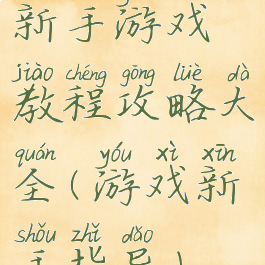 新手游戏
jiào chéng gōng lüè dà
教程攻略大
quán yóu xì xīn
全(游戏新
shǒu zhǐ dǎo
手指导)